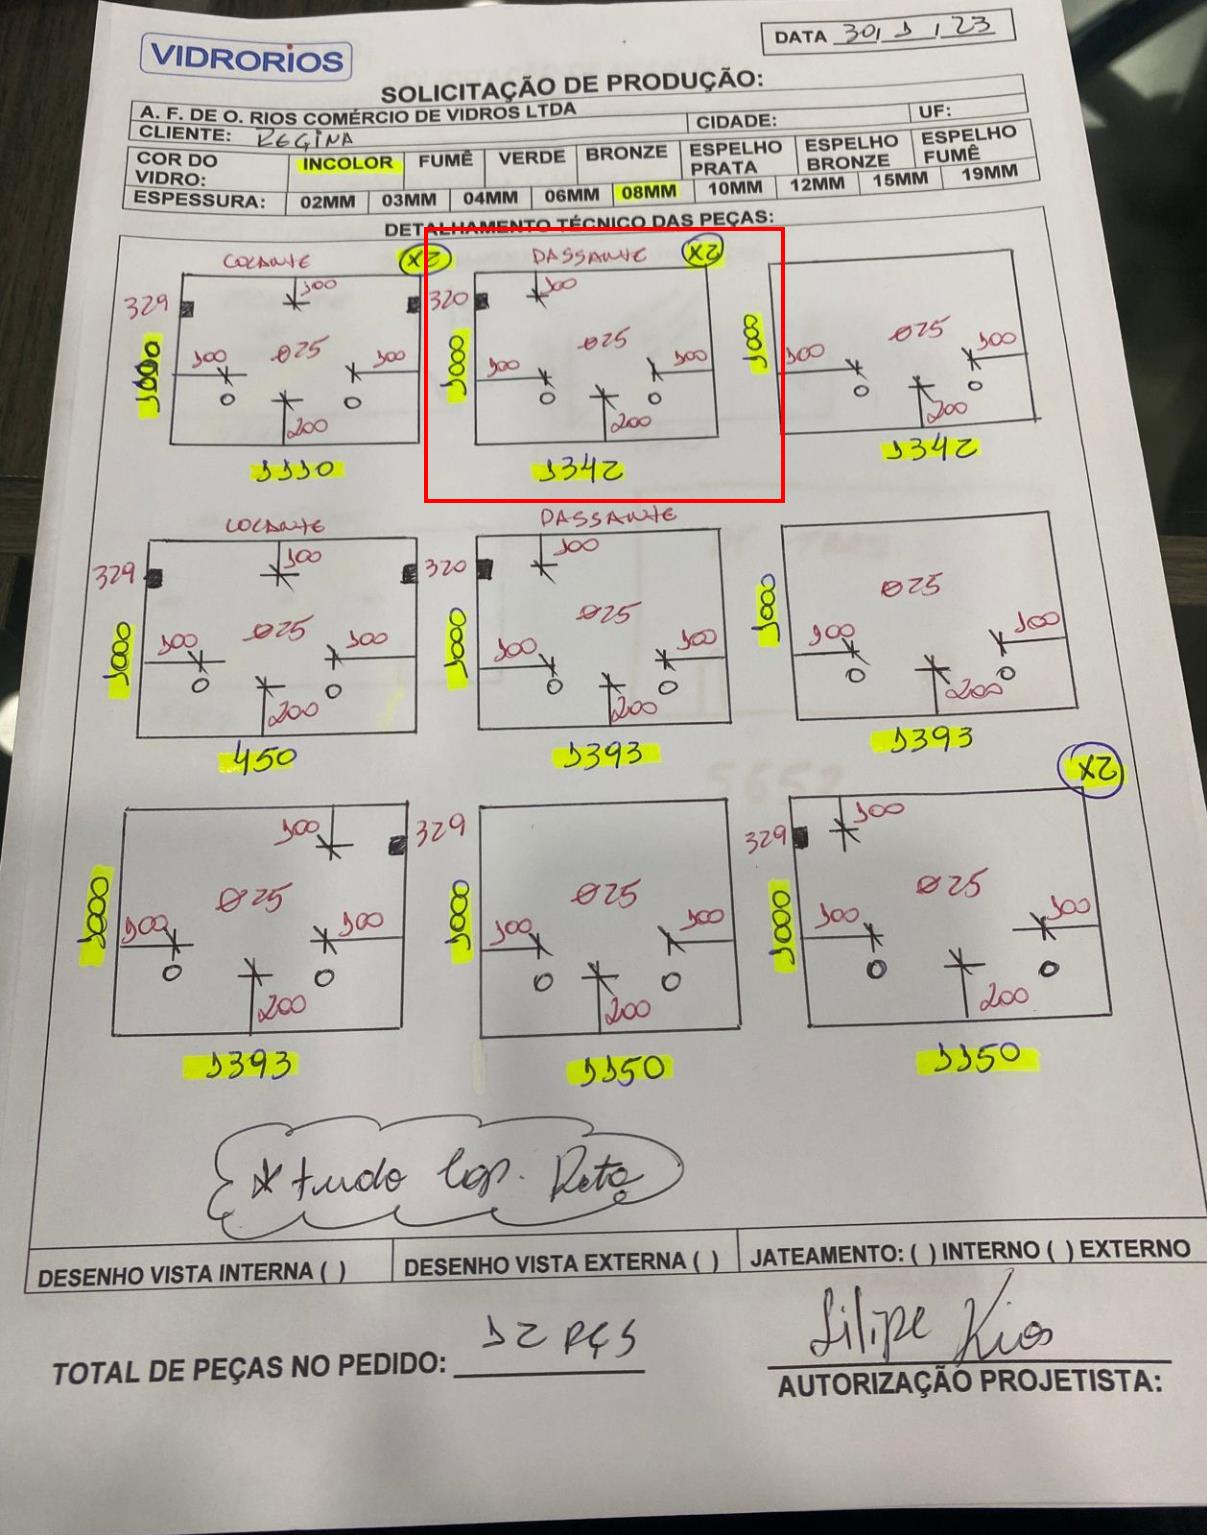 VIDRORIOS
DATA 30, 1, 23
SOLICITAÇÃO DE PRODUÇÃO:
A. F. DE O. RIOS COMÉRCIO DE VIDROS LTDA
CIDADE:
UF:
CLIENTE: REGINA
COR DO VIDRO:
INCOLOR
FUMÊ
VERDE
BRONZE
ESPELHO PRATA
ESPELHO BRONZE
ESPELHO FUMÊ
ESPESSURA:
02MM
03MM
04MM
06MM
08MM
10MM
12MM
15MM
19MM
DETALHAMENTO TÉCNICO DAS PEÇAS:
COLANTE
X2
329
100
1000
100
Ø25
100
200
1110
PASSANTE
X2
320
100
1000
100
Ø25
100
200
1342
1000
100
Ø25
100
200
1342
COLANTE
329
100
1000
100
Ø25
100
200
450
PASSANTE
320
100
1000
100
Ø25
100
200
1393
1000
100
Ø25
100
200
1393
100
329
1000
100
Ø25
100
200
1393
1000
100
Ø25
100
200
1150
X2
329
100
1000
100
Ø25
100
200
1150
* tudo Lap. Reta
DESENHO VISTA INTERNA ( )
DESENHO VISTA EXTERNA ( )
JATEAMENTO: ( ) INTERNO ( ) EXTERNO
TOTAL DE PEÇAS NO PEDIDO: 12 PÇS
Filipe Rios
AUTORIZAÇÃO PROJETISTA: